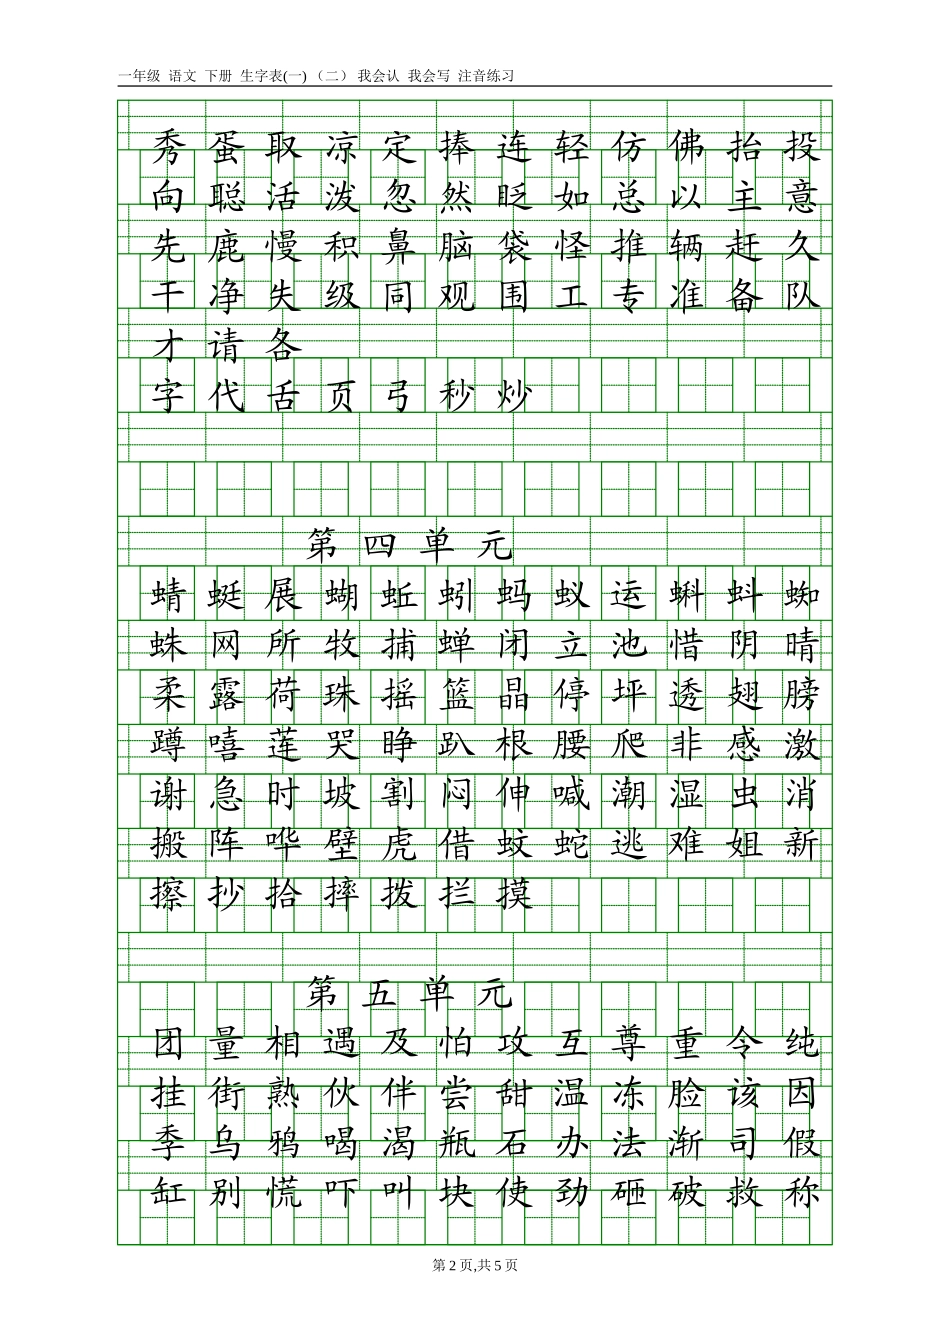 一年级 语文 下册 生字表(一) （二） 我会认 我会写 注音练习
秀 蛋 取 凉 定 捧 连 轻 仿 佛 抬 投
向 聪 活 泼 忽 然 眨 如 总 以 主 意
先 鹿 慢 积 鼻 脑 袋 怪 推 辆 赶 久
干 净 失 级 同 观 围 工 专 准 备 队
才 请 各
字 代 舌 页 弓 秒 炒
第 四 单 元
蜻 蜓 展 蝴 蚯 蚓 蚂 蚁 运 蝌 蚪 蜘
蛛 网 所 牧 捕 蝉 闭 立 池 惜 阴 晴
柔 露 荷 珠 摇 篮 晶 停 坪 透 翅 膀
蹲 嘻 莲 哭 睁 趴 根 腰 爬 非 感 激
谢 急 时 坡 割 闷 伸 喊 潮 湿 虫 消
搬 阵 哗 壁 虎 借 蚊 蛇 逃 难 姐 新
擦 抄 拾 摔 拨 拦 摸
第 五 单 元
团 量 相 遇 及 怕 攻 互 尊 重 令 纯
挂 街 熟 伙 伴 尝 甜 温 冻 脸 该 因
季 乌 鸦 喝 渴 瓶 石 办 法 渐 司 假
缸 别 慌 吓 叫 块 使 劲 砸 破 救 称
第 2 页,共 5 页